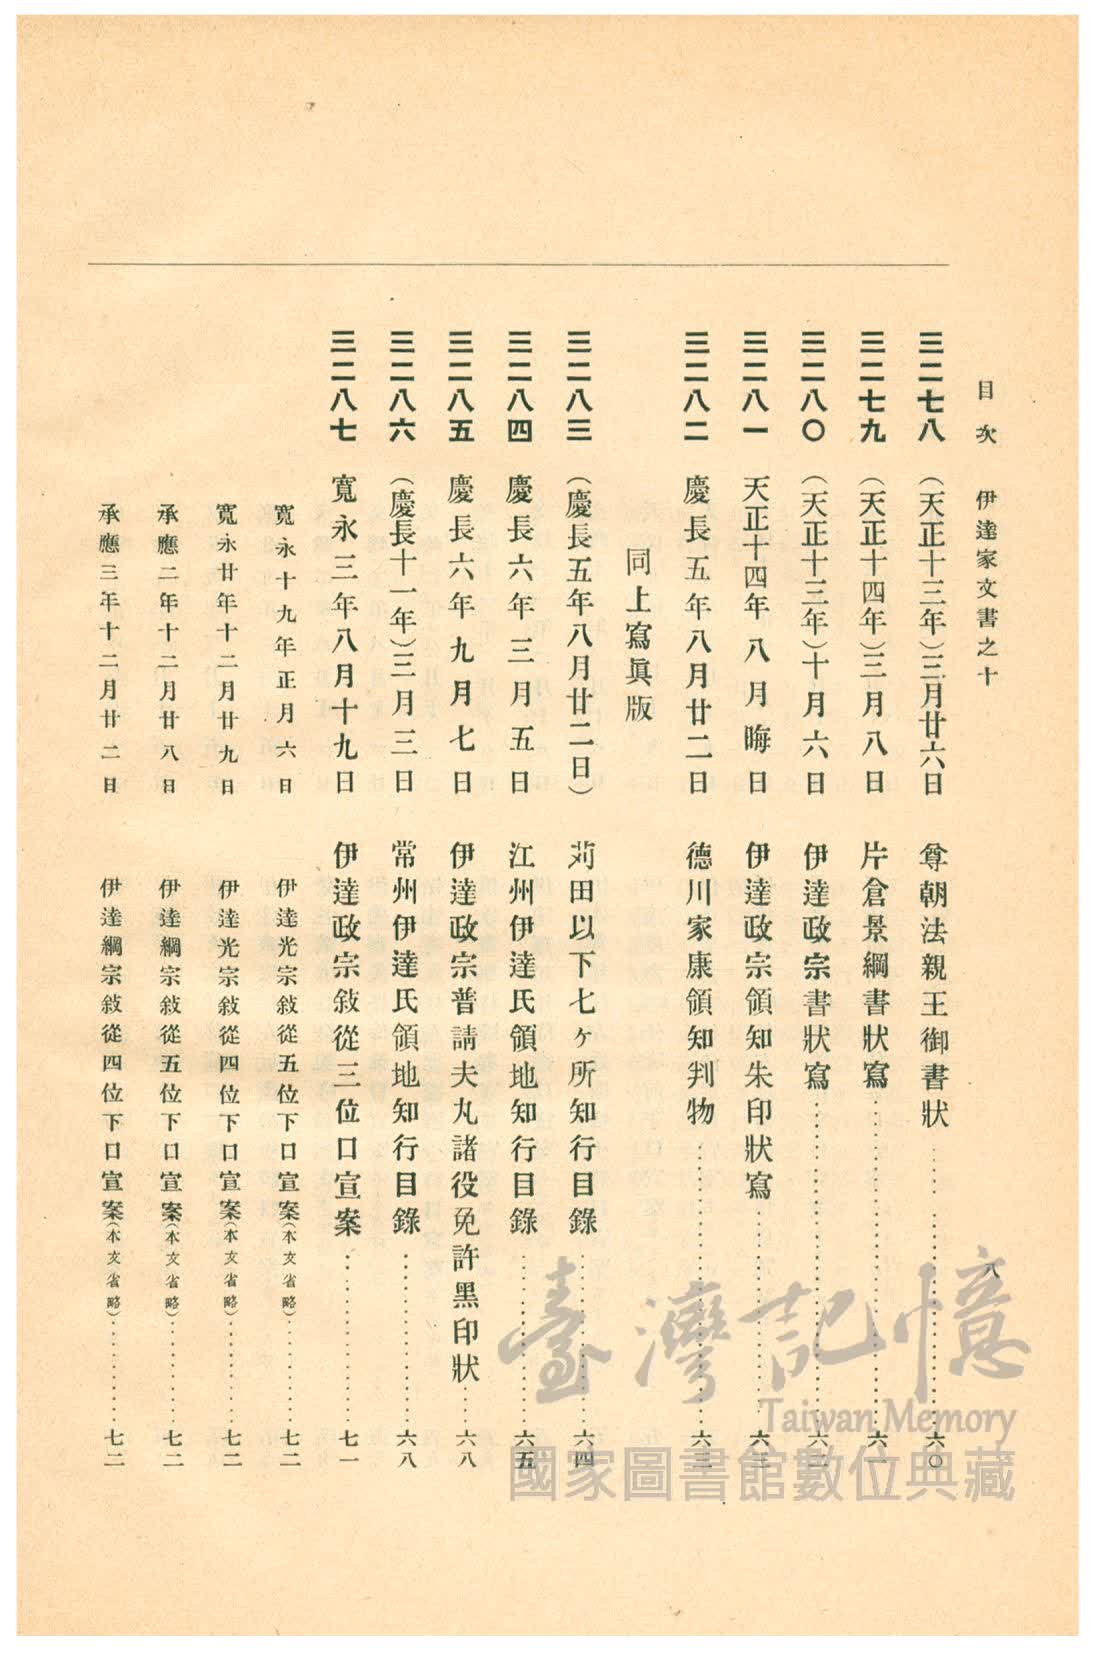 目次 伊達家文書之十 八
三二七八 (天正十三年)三月廿六日 尊朝法親王御書狀 六〇
三二七九 (天正十四年)三月八日 片倉景綱書狀寫 六一
三二八〇 (天正十三年)十月六日 伊達政宗書狀寫 六二
三二八一 天正十四年八月晦日 伊達政宗領知朱印狀寫
三二八二 慶長五年八月廿二日 德川家康領知判物
同上寫眞版
三二八三 (慶長五年八月廿二日) 苅田以下七ヶ所知行目錄 六四
三二八四 慶長六年三月五日 江州伊達氏領地知行目錄 六五
三二八五 慶長六年九月七日 伊達政宗普請夫丸諸役免許黑印狀 六八
三二八六 (慶長十一年)三月三日 常州伊達氏領地知行目錄 六八
三二八七 寬永三年八月十九日 伊達政宗敍從三位口宣案 七一
寬永十九年正月六日 伊達光宗敍從五位下口宣案(本文省略) 七二
寬永廿年十二月廿九日 伊達光宗敍從四位下口宣案(本文省略) 七二
承應二年十二月廿八日 伊達綱宗敍從五位下口宣案(本文省略) 七二
承應三年十二月廿二日 伊達綱宗敍從四位下口宣案(本文省略) 七二
臺灣記憶
Taiwan Memory
國家圖書館數位典藏